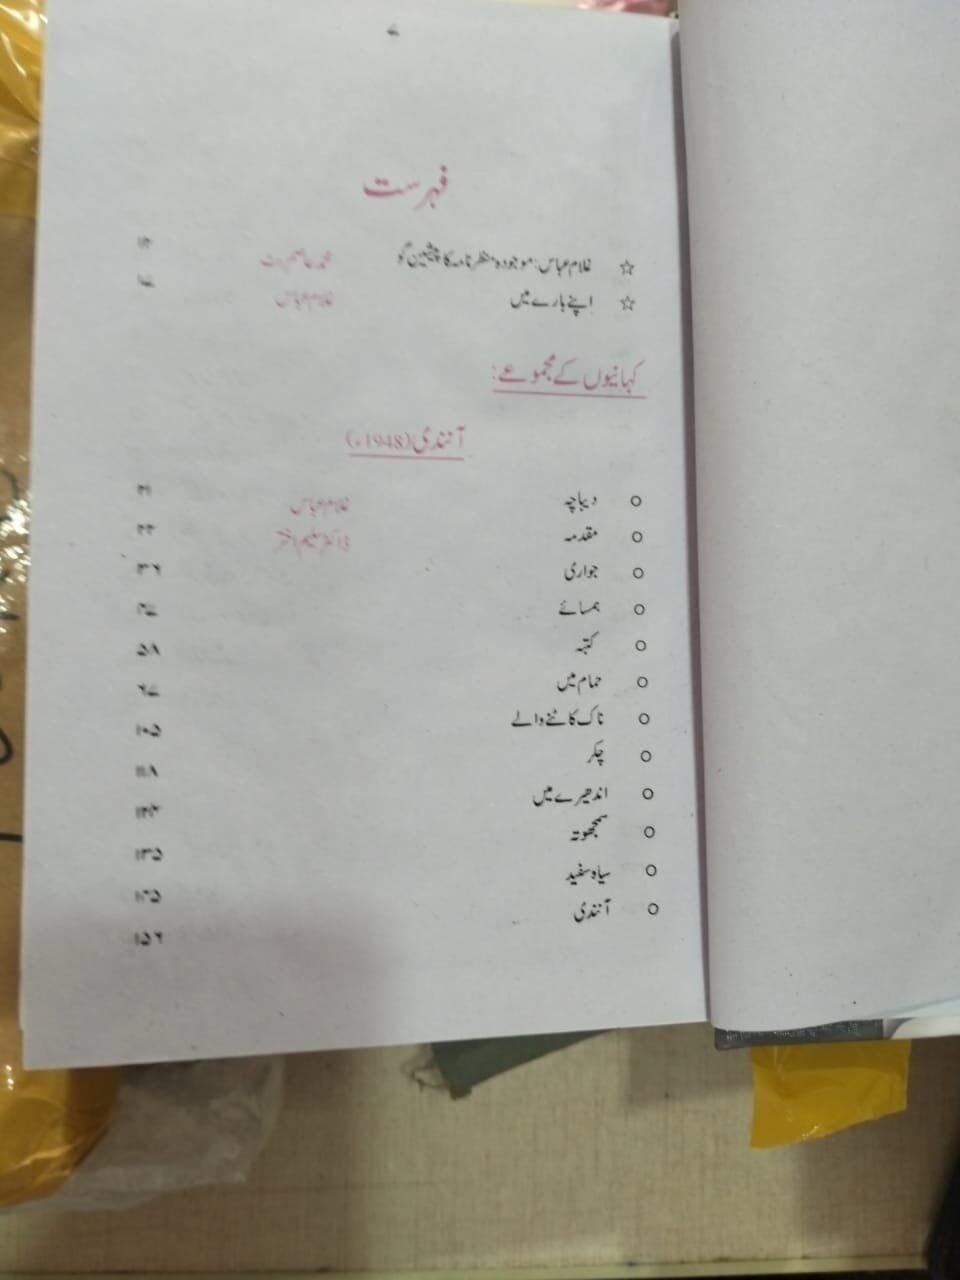 ۷
فہرست
☆ غلام عباس: موجودہ منظر نامہ کا پیشین گو محمد عاصم بٹ
☆ اپنے بارے میں غلام عباس
کہانیوں کے مجموعے:
آنندی (1948ء)
○ دیباچہ غلام عباس ۳۱
○ مقدمہ ڈاکٹر سلیم اختر
○ جواری ۳۶
○ ہمسائے ۴۷
○ کتبہ ۵۸
○ حمام میں ۶۷
○ ناک کاٹنے والے ۱۰۵
○ چکر ۱۱۸
○ اندھیرے میں
○ سمجھوتہ ۱۳۵
○ سیاہ سفید ۱۴۵
○ آنندی ۱۵۶